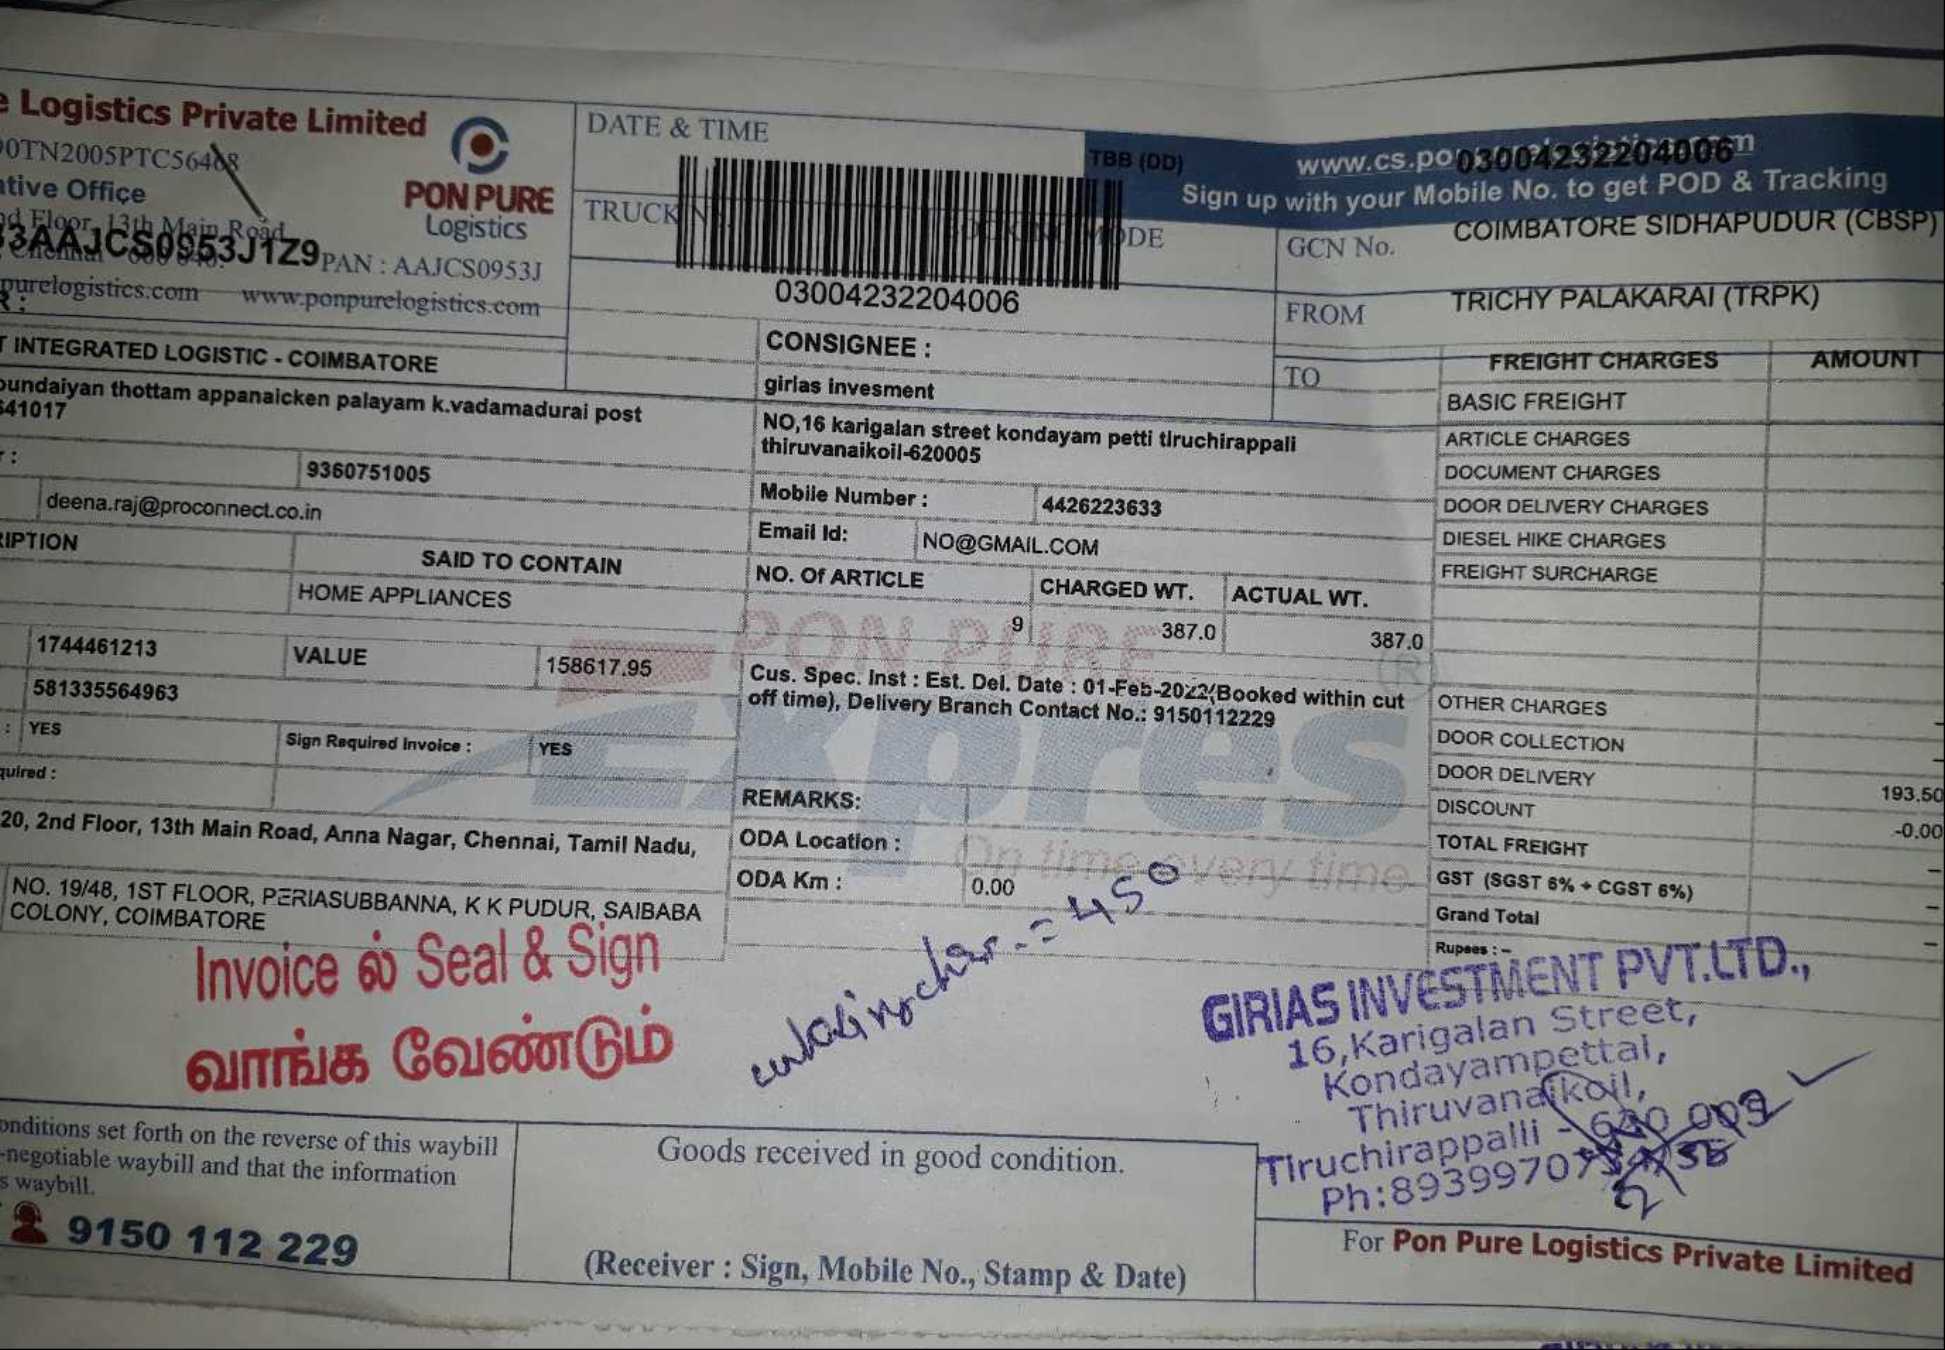 e Logistics Private Limited
90TN2005PTC56468
ative Office
nd Floor, 13th Main Road
33AAJCS0953J1Z9 PAN : AAJCS0953J
purelogistics.com www.ponpurelogistics.com
PON PURE
Logistics
DATE & TIME
TRUCK
MODE
03004232204006
TBB (DD)
www.cs.po
03004232204006
Sign up with your Mobile No. to get POD & Tracking
GCN No.
COIMBATORE SIDHAPUDUR (CBSP)
FROM
TRICHY PALAKARAI (TRPK)
TO
R :
T INTEGRATED LOGISTIC - COIMBATORE
oundaiyan thottam appanaicken palayam k.vadamadurai post
641017
r :
9360751005
deena.raj@proconnect.co.in
CONSIGNEE :
girias invesment
NO,16 karigalan street kondayam petti tiruchirappali
thiruvanaikoil-620005
Mobile Number :
4426223633
Email Id:
NO@GMAIL.COM
RIPTION
SAID TO CONTAIN
HOME APPLIANCES
NO. Of ARTICLE
CHARGED WT.
ACTUAL WT.
9
387.0
387.0
1744461213
VALUE
158617.95
581335564963
: YES
Sign Required Invoice :
YES
quired :
Cus. Spec. Inst : Est. Del. Date : 01-Feb-2022(Booked within cut
off time), Delivery Branch Contact No.: 9150112229
PON PURE
Expres
On time every time
REMARKS:
ODA Location :
ODA Km :
0.00
20, 2nd Floor, 13th Main Road, Anna Nagar, Chennai, Tamil Nadu,
NO. 19/48, 1ST FLOOR, PERIASUBBANNA, K K PUDUR, SAIBABA
COLONY, COIMBATORE
FREIGHT CHARGES
AMOUNT
BASIC FREIGHT
ARTICLE CHARGES
DOCUMENT CHARGES
DOOR DELIVERY CHARGES
DIESEL HIKE CHARGES
FREIGHT SURCHARGE
OTHER CHARGES
DOOR COLLECTION
DOOR DELIVERY
193.50
DISCOUNT
-0.00
TOTAL FREIGHT
GST (SGST 6% + CGST 6%)
Grand Total
Rupees : -
Invoice ல் Seal & Sign
வாங்க வேண்டும்
= 450
GIRIAS INVESTMENT PVT.LTD.,
16,Karigalan Street,
Kondayampettai,
Thiruvanaikoil,
Tiruchirappalli -
Ph:89399707
onditions set forth on the reverse of this waybill
-negotiable waybill and that the information
s waybill.
9150 112 229
Goods received in good condition.
(Receiver : Sign, Mobile No., Stamp & Date)
For Pon Pure Logistics Private Limited